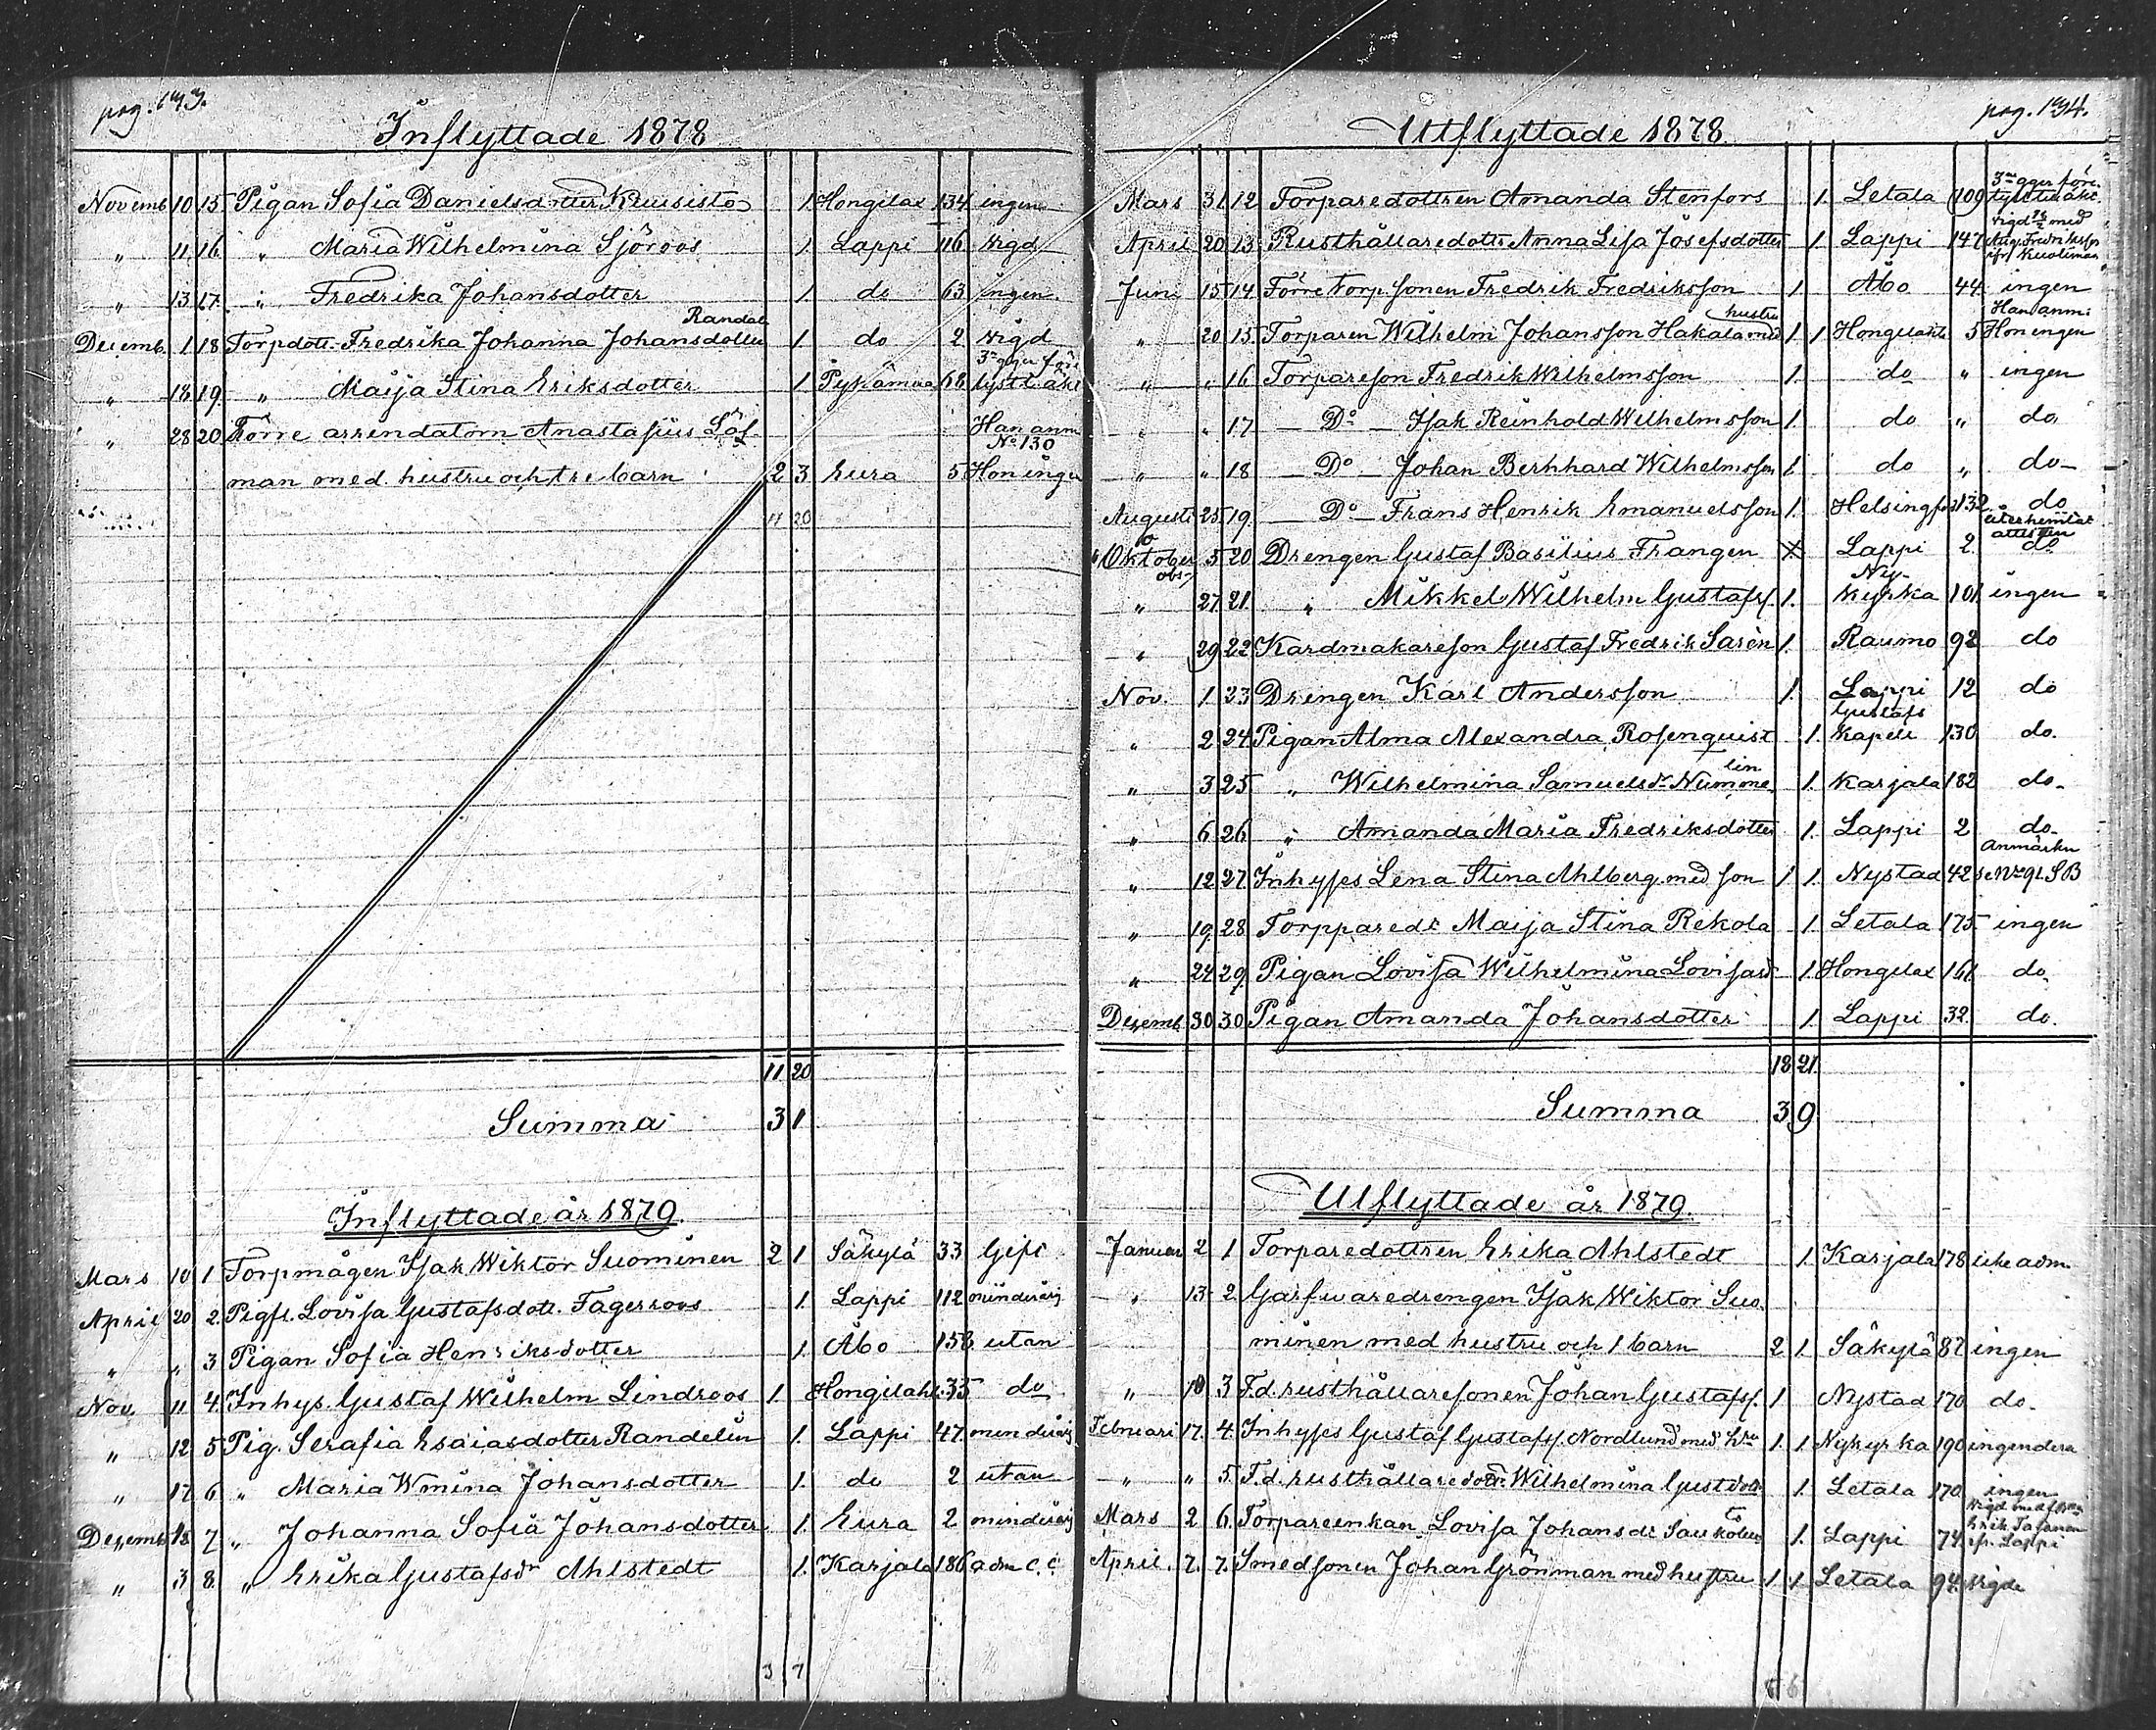 pag. 133.
Inflyttade 1878
Novemb 10 15 Pigan Sofia Danielsdotter Kuusisto 1 Hongilax 134 ingen
" 11 16 " Maria Wilhelmina Sjöroos 1. Lappi 116 vigd
" 13 17 " Fredrika Johansdotter 1 do 63 ingen.
Randal
Decemb. 1 18 Torpdott. Fredrika Johanna Johansdotter 1. do 2 vigd
3ne ggr för
" 18 19 " Maija Stina Eriksdotter 1 Pykämaa 68 lyst t. äkt
" 28 20 Förre arrendatorn Anastasius Löf- Han anm
No 130
man med hustru och tre barn 2 3 Eura 5 Hon ingen
11 20
11 20
Summa 31
Inflyttade år 1879.
Mars 10 1 Torpmågen Isak Wiktor Suominen 2 1 Säkylä 33 Gift
April 20 2. Pigfl. Lovisa Gustafsdott. Fagerroos 1. Lappi 112 minderårig
" " 3 Pigan Sofia Henriksdotter 1. Åbo 158 utan
Nov. 11 4. Inhys. Gustaf Wilhelm Lindroos 1. Hongilaht. 35 do
" 12 5 Pig. Serafia Esaiasdotter Randelin 1. Lappi 47. minderårig
" 17 6 " Maria Wmina Johansdotter 1. do 2 utan
Desemb. 18 7 " Johanna Sofia Johansdotter 1. Eura 2 minderårig
" 3 8. " Erika Gustafsdr Ahlstedt 1. Karjala 186 adm. c. c.
3 7
pag. 134.
Utflyttade 1878.
3ne ggr före-
Mars 31 12 Torparedottren Amanda Stenfors 1. Letala 109 lyst till äkt.
vigd med
April 20 13 Rusthållaredottr Anna Lisa Josefsdotter 1. Lappi 147 Aug. Fredriksson
ifr. Kuolimaa
Juni 15 14 Förre torp. sonen Fredrik Fredriksson 1 Åbo 44 ingen
hustru Han anm:
" 20 15 Torparen Wilhelm Johansson Hakala med 1 1 Hongilaht 5 Hon ingen
" " 16 Torpareson Fredrik Wilhelmsson 1. do " ingen
" " 17 — Do — Isak Reinhold Wilhelmsson 1. do " do
" " 18 — Do — Johan Bernhard Wilhelmsson 1. do " do
Augusti 25 19. — Do — Frans Henrik Emanuelsson 1. Helsingfors 132 do
återhemtat
attesten
Oktober 5 20 Drengen Gustaf Basilius Frangen X Lappi 2. do
obs Ny-
" 27 21. " Mikkel Wilhelm Gustafss. 1. kyrka 101 ingen
" 29 22 Kardmakareson Gustaf Fredrik Sarén 1. Raumo 92 do
Nov. 1 23 Drengen Karl Andersson 1. Lappi 12 do
Gustafs
" 2 24 Pigan Alma Alexandra Rosenquist 1. Kapell 130 do.
lin
" 3 25 " Wilhelmina Samuelsdr Numme- 1. Karjala 182 do.
" 6 26 " Amanda Maria Fredriksdotter 1. Lappi 2 do
Anmärkn
" 12 27 Inhyses Lena Stina Ahlberg med son 1 1. Nystad 42 se No 91 S B
" 19. 28. Torpparedr Maija Stina Rekola 1. Letala 175 ingen
" 24 29. Pigan Lovisa Wilhelmina Lovisasdr 1. Hongilax 161 do.
Desemb. 30 30 Pigan Amanda Johansdotter 1. Lappi 32. do.
18 21.
Summa 39
Utflyttade år 1879.
Januari 2 1 Torparedottren Erika Ahlstedt 1. Karjala 178 icke adm.
" 13 2 Garfwaredrengen Isak Wiktor Suo-
minen med hustru och 1 barn 2 1. Säkylä 87 ingen
" 18 3 F.d. rusthållaresonen Johan Gustafss. 1 Nystad 170 do.
Februari 17. 4. Inhyses Gustaf Gustafss. Nordlund med hru 1. 1 Nykyrka 190 ingendera
" " 5. F.d. rusthållaredottr. Wilhelmina Gustdott 1. Letala 170 ingen
Vigd med
Mars 2 6. Torpareenkan Lovisa Johansdr Saukolin 1. Lappi 74 Erik
ifr. Lappi
April. 7. 7. Smedsonen Johan Grönman med hustru 1 1 Letala 94. vigde
6 6